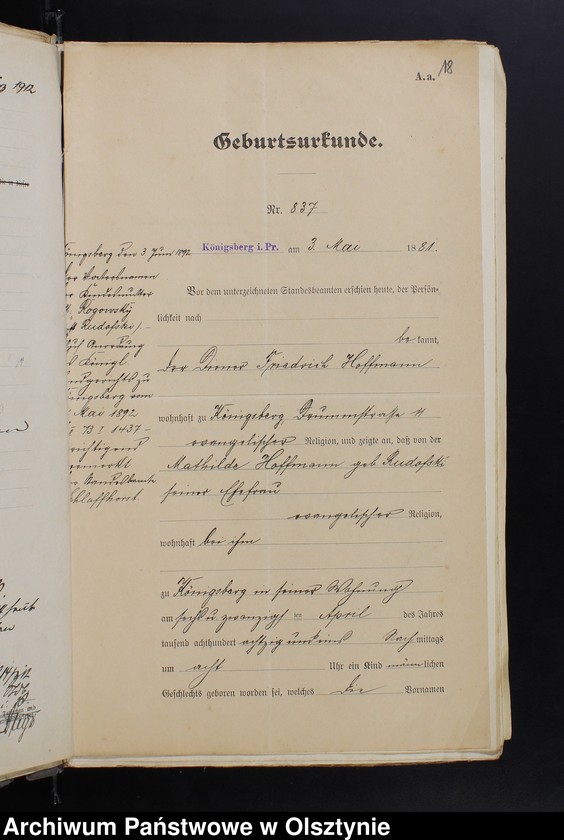 A. a. 18
Geburtsurkunde.
Nr. 837
Königsberg i. Pr. am 3. Mai 1881.
Vor dem unterzeichneten Standesbeamten erschien heute, der Persön-
lichkeit nach
be kannt,
der Diener Friedrich Hoffmann
wohnhaft zu Königsberg, Drummstrasse 11
evangelischer Religion, und zeigte an, daß von der
Mathilde Hoffmann geb Rudofski
seiner Ehefrau
evangelischer Religion,
wohnhaft bei ihm
zu Königsberg in seiner Wohnung
am sechs u zwanzigsten April des Jahres
tausend achthundert achtzig und eins Nach mittags
um acht Uhr ein Kind männ lichen
Geschlechts geboren worden sei, welches den Vornamen
önigsberg den 3 Juni 1892
er Vatersnamen
r Kindesmutter
Rogowsky
Rudofski
Anordnung
Königl
ndgerichts zu
nigsberg vom
Mai 1892
1437-
richtigend
emerkt
Standesbeamte
hlaffhorst
1912
Archiwum Państwowe w Olsztynie